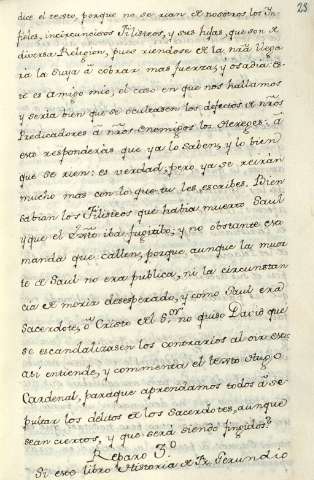 25
dice el texto, porque no se rian de nosotros, los Yn-
fieles, incircuncisos Filisteos, y sus hijas, que son de
diversa Religion, pues riendose de la nrã llega
rà la Suya à cobrar mas fuerzas, y osadia: es-
te es amigo mio, el caso en que nos hallamos
y seria bien que se ocultasen los defectos de nrõs
Predicadores à nrõs enemigos los Hereges: à
esto responderàs que ya lo saben, y lo bien
que se rien: es verdad, pero ya se reiràn
mucho mas con lo que tu les escribes. Bien
sabian los Filisteos que habia muerto Saul
y que el Exto iba fugitibo, y no obstante eso
manda que callen, porque aunque la muer
te de Saul no era publica, ni la circunstan
cia de morir desesperado, y como Saul era
Sacerdote, ò Cristo del Sor. no quiso David que
se escandalizasen los contrarios al oir eso:
asi entiende, y commenta el texto Hugo
Cardenal, paraque aprendamos todos à se-
pultar los delitos de los Sacerdotes, aunque
sean ciertos, y que serà siendo fingidos?
Reparo 3.º
Si este libro Historia de Fr. Gerundio